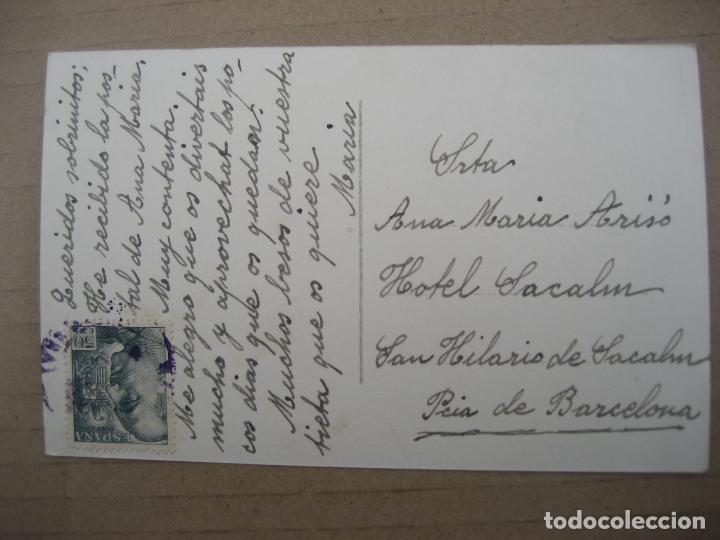 Queridos sobrinitos;
He recibido la pos-
tal de Ana Maria.
Muy contenta.
Me alegro que os divertais
mucho y aprovechat los po-
cos dias que os quedan.
Muchos besos de vuestra
tieta que os quiere
Maria
Srta
Ana Maria Arisó
Hotel Sacalm
San Hilario de Sacalm
Pcia de Barcelona
ESPAÑA
todocoleccion
todocoleccion.net